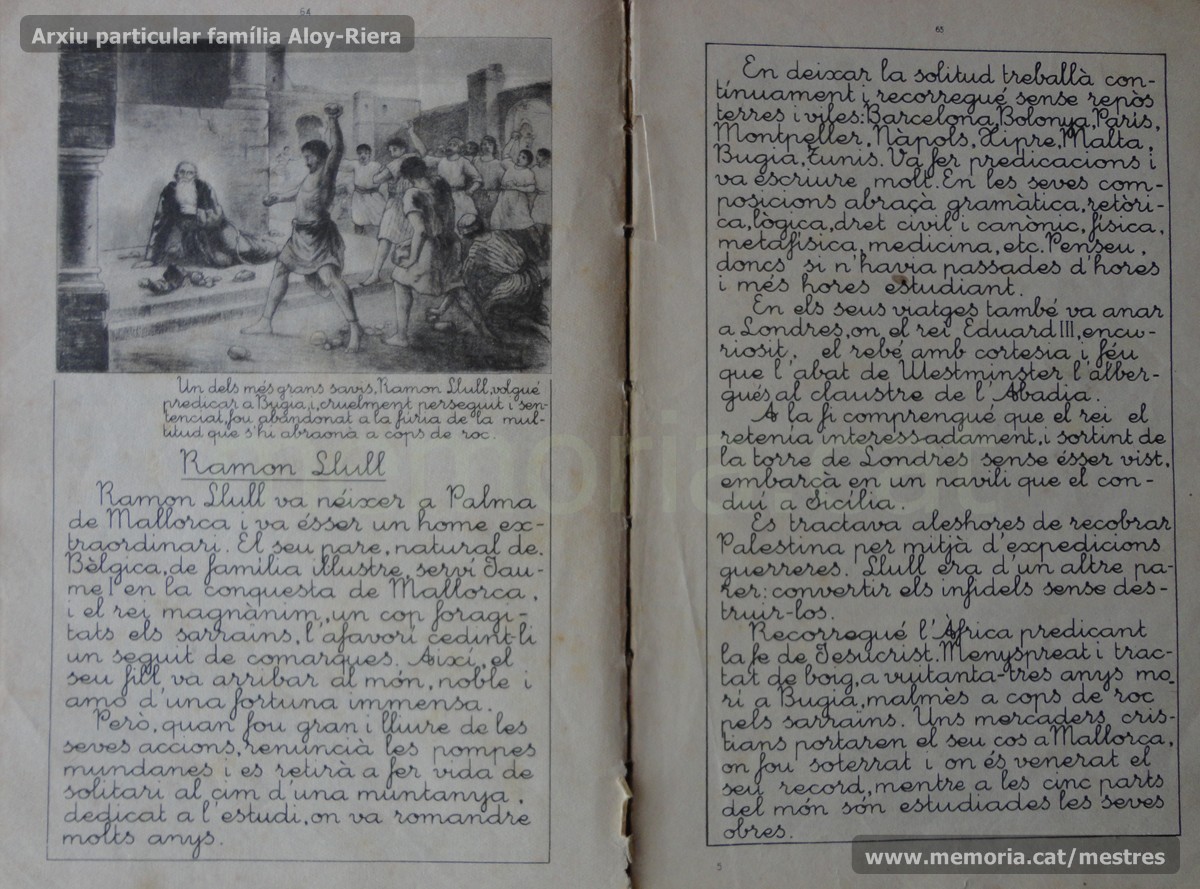 64
Arxiu particular família Aloy-Riera
Un dels més grans savis, Ramon Llull, volgué
predicar a Bugia, i, cruelment perseguit i sen-
tenciat, fou abandonat a la fúria de la mul-
titud que s'hi abraonà a cops de roc.
Ramon Llull
Ramon Llull va néixer a Palma
de Mallorca i va ésser un home ex-
traordinari. El seu pare, natural de
Bèlgica, de família il·lustre, serví Jau-
me I en la conquesta de Mallorca,
i el rei magnànim, un cop foragi-
tats els sarraïns, l'afavorí cedint-li
un seguit de comarques. Així, el
seu fill va arribar al món, noble i
amo d'una fortuna immensa.
Però, quan fou gran i lliure de les
seves accions, renuncià les pompes
mundanes i es retirà a fer vida de
solitari al cim d'una muntanya,
dedicat a l'estudi, on va romandre
molts anys.
65
En deixar la solitud treballà con-
tínuament i recorregué sense repòs
terres i viles: Barcelona, Bolonya, París,
Montpeller, Nàpols, Xipre, Malta,
Bugia, Tunis. Va fer predicacions i
va escriure molt. En les seves com-
posicions abraçà gramàtica, retòri-
ca, lògica, dret civil i canònic, física,
metafísica, medicina, etc. Penseu,
doncs si n'havia passades d'hores
i més hores estudiant.
En els seus viatges també va anar
a Londres, on el rei Eduard III, encu-
riosit, el rebé amb cortesia i féu
que l'abat de Westminster l'alber-
gués al claustre de l'Abadia.
A la fi comprengué que el rei el
retenia interessadament, i sortint de
la torre de Londres sense ésser vist,
embarcà en un navili que el con-
duí a Sicília.
Es tractava aleshores de recobrar
Palestina per mitjà d'expedicions
guerreres. Llull era d'un altre pa-
rer: convertir els infidels sense des-
truir-los.
Recorregué l'Àfrica predicant
la fe de Jesucrist. Menyspreat i trac-
tat de boig, a vuitanta-tres anys mo-
rí a Bugia, malmès a cops de roc
pels sarraïns. Uns mercaders cris-
tians portaren el seu cos a Mallorca,
on fou soterrat i on és venerat el
seu record, mentre a les cinc parts
del món són estudiades les seves
obres.
5
www.memoria.cat/mestres
memoria.cat